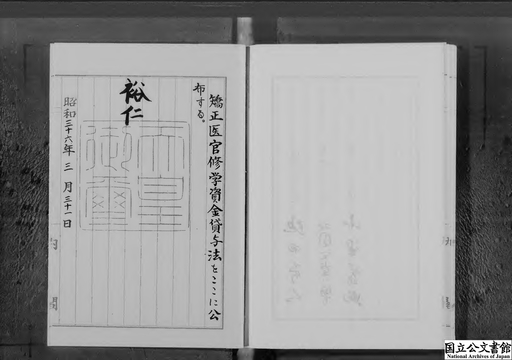 矯正医官修学資金貸与法をここに公
布する。
裕仁
天皇
御璽
昭和三十六年三月三十一日
内閣
国立公文書館
National Archives of Japan